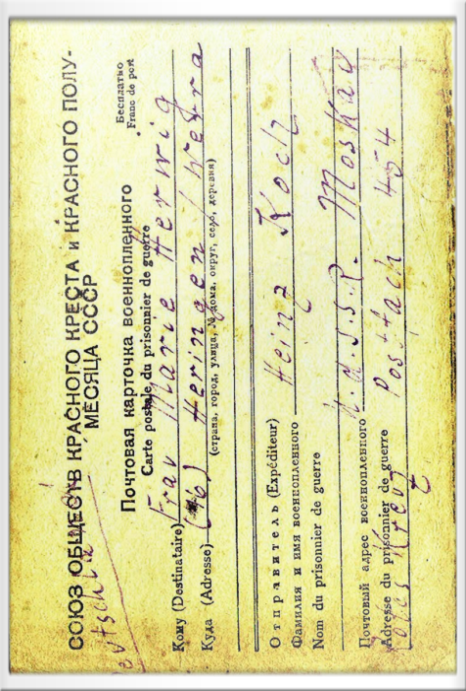 СОЮЗ ОБЩЕСТВ КРАСНОГО КРЕСТА и КРАСНОГО ПОЛУ-
МЕСЯЦА СССР
Бесплатно
Franc de port
Почтовая карточка военнопленного
Carte postale du prisonnier de guerre
Кому (Destinataire) Frau Marie Herwig
Куда (Adresse) (16) Heringen / Werra
(страна, город, улица, № дома, округ, село, деревня)
Отправитель (Expéditeur)
Фамилия и имя военнопленного Heinz Koch
Nom du prisonnier de guerre
Почтовый адрес военнопленного U.d.S.S.R. Moskau
Adresse du prisonnier de guerre
Rotes Kreuz Postfach 454